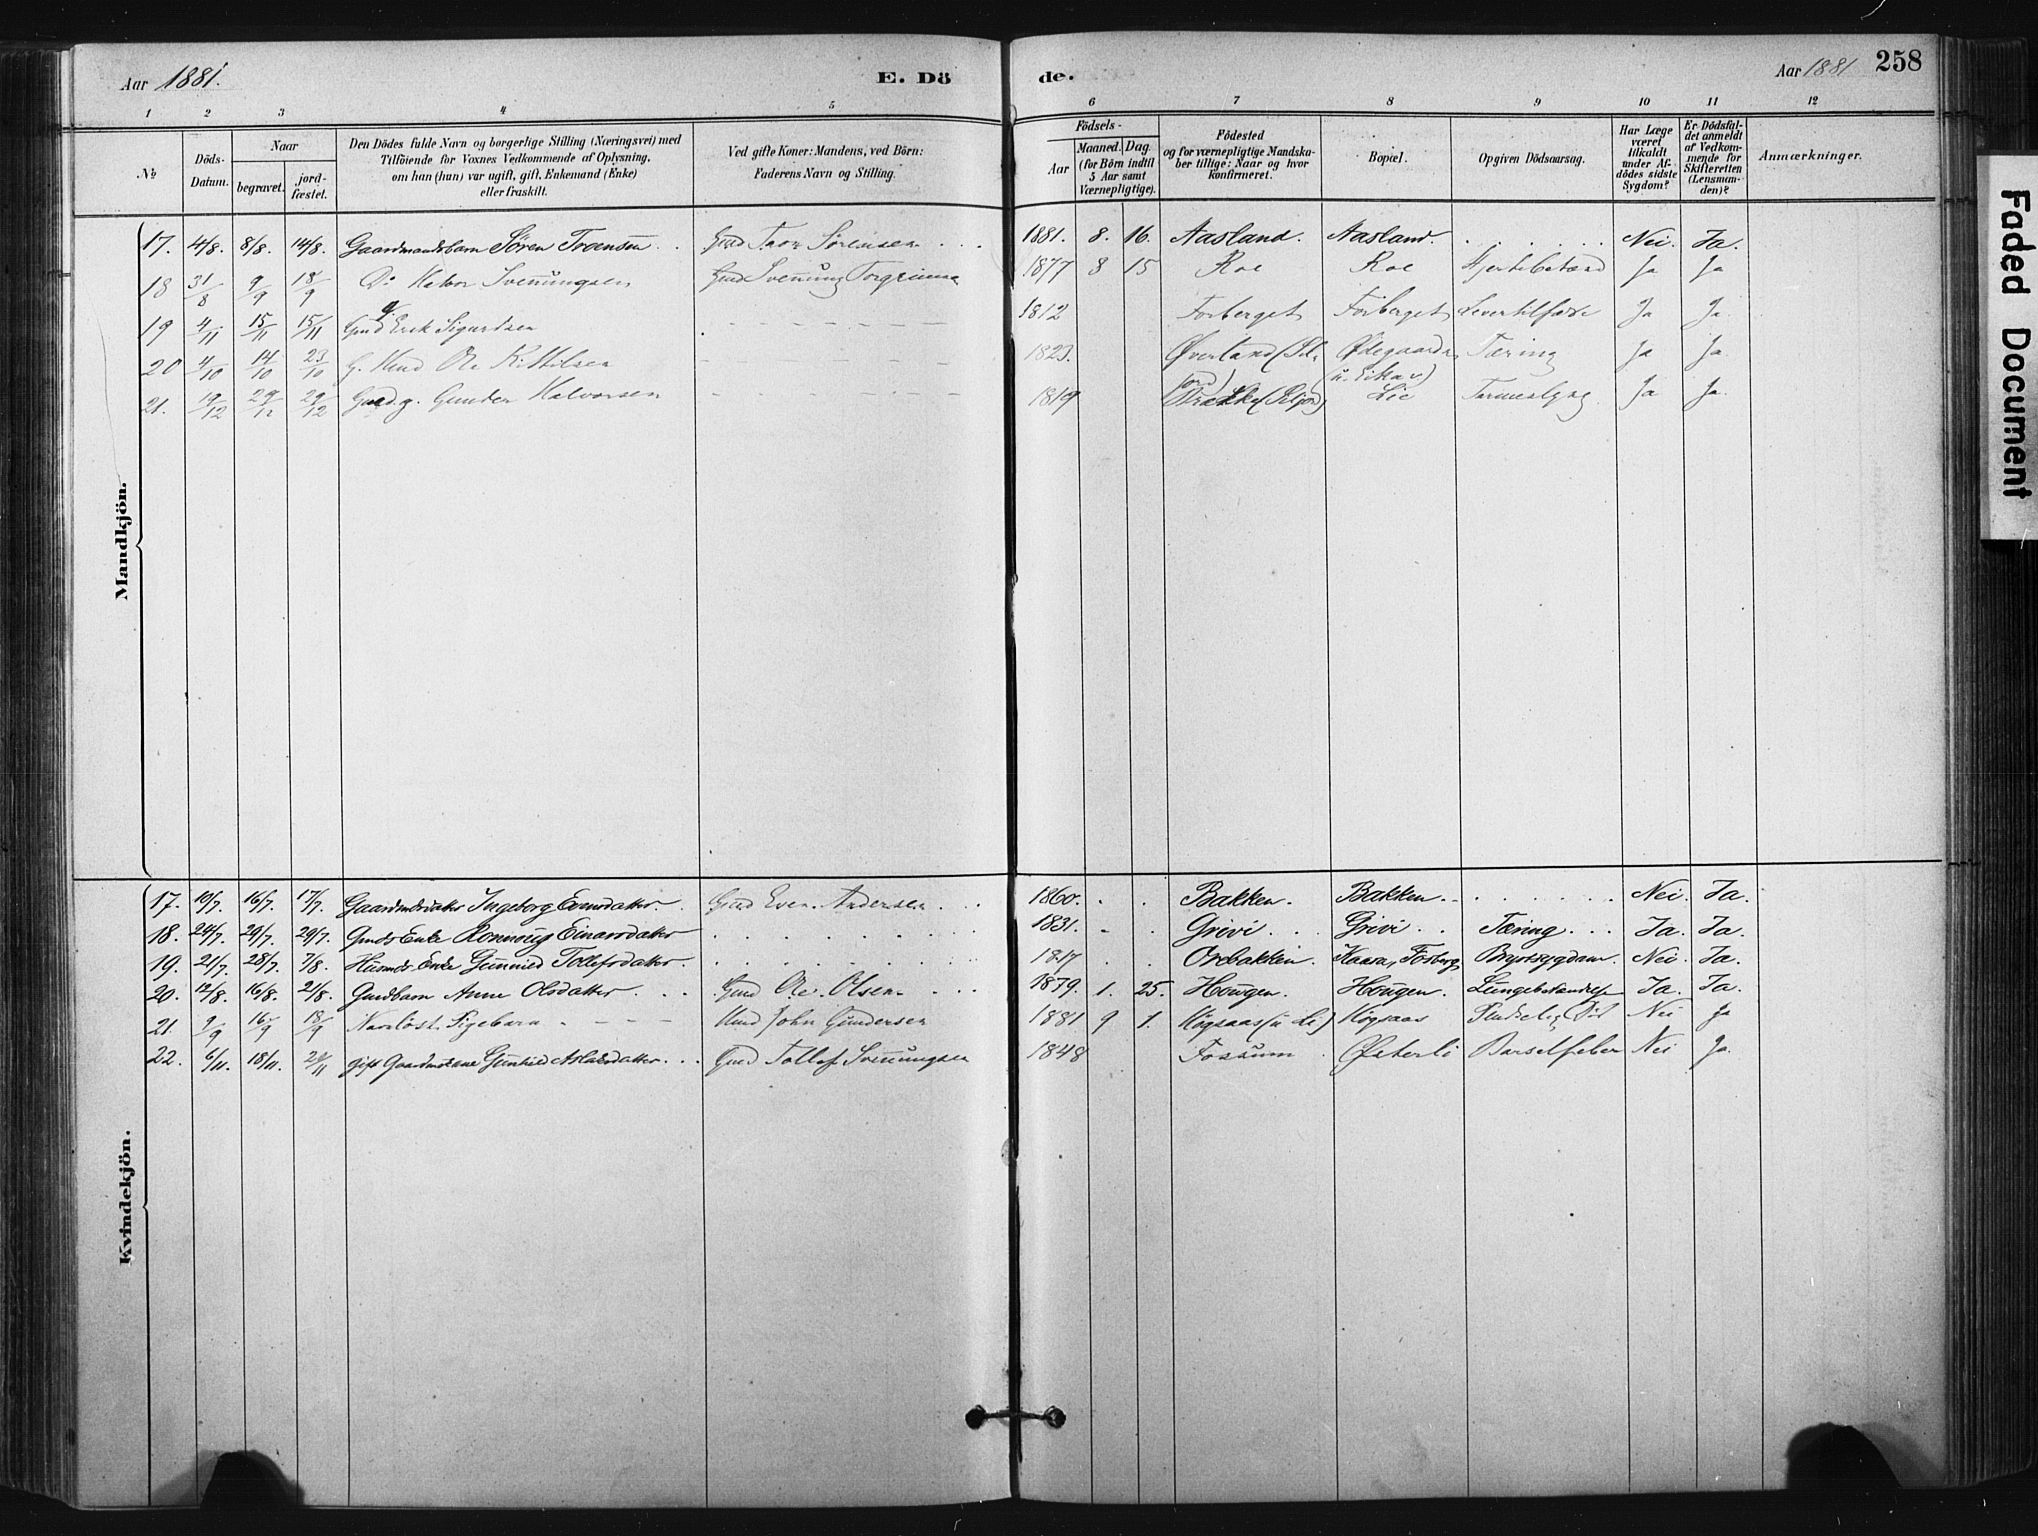 Aar 1881. E. Dö de. Aar 1881 258
1 2 3 4 5 6 7 8 9 10 11 12
№
Döds-Datum.
Naar
begravet. jord-fæstet.
Den Dödes fulde Navn og borgerlige Stilling (Næringsvei) med
Tilföiende for Voxnes Vedkommende af Oplysning,
om han (hun) var ugift, gift, Enkemand (Enke)
eller fraskilt.
Ved gifte Koner: Mandens, ved Börn:
Faderens Navn og Stilling.
Födsels-
Aar
Maaned. Dag.
(for Börn indtil
5 Aar samt
Værnepligtige).
Födested
og for værnepligtige Mandska-
ber tillige: Naar og hvor
konfirmeret.
Bopæl.
Opgiven Dödsaarsag.
Har Læge
været
tilkaldt
under Af-
dödes sidste
Sygdom?
Er Dödsfal-
det anmeldt
af Vedkom-
mende for
Skifteretten
(Lensman-
den)?
Anmærkninger.
Mandkjön.
17. 4/8. 8/8. 14/8. Gaardmandsbarn Sören Toransen Gmd Taor Sörensen 1881. 8. 16. Aasland. Aasland. Nei. Ja.
18 31/8 9/9 18/9 Do Halvor Svennungsen Gmd Svennung Torgrimsen 1877 8 15 Roe Roe Hjertebetænd Ja Ja
19 4/11 15/11 15/11 Gmd g. Erik Sigurdsen 1812 Forberget Forberget Levertilfælde Ja Ja
20 4/10 14/10 23/10 G. Kmd Ole Kittilsen 1823. Øverland (Sel- Ødegaarden Tæring Ja Ja
21. 19/12 29/12 29/12 Gmd. g. Gunder Halvorsen 1819 jord) Brække (Seljord) (u. Eika) Lie Tarmeslyng Ja Ja
Kvindekjön.
17. 10/7. 16/7. 17/7. Gaardmdsdatter Ingeborg Evensdatter. Gmd Even Andersen 1860. Bakken. Bakken. Nei. Ja.
18. 24/7. 29/7. 29/7. Gmds Enke Rönnoug Einarsdatter 1831. Grivi Grivi Tæring Ja. Ja.
19. 21/7. 28/7. 7/8. Husmds Enke Gunnild Tollefsdatter. 1817 Orebakken. Kaasa, Fosberg Brystsygdom. Nei. Ja.
20. 12/8. 16/8. 21/8. Gmdbarn Anne Olsdatter. Gmd Ole Olsen 1879. 1. 25. Hougen. Hougen. Lungebetændelse Ja. Ja.
21. 9/9 16/9 18/9 Navnløst Pigebarn Kmd John Gundersen 1881 9 1. Høgsaas (u Li) Høgsaas Pludselig Död Nei Ja
22. 6/11. 18/11. 20/11 gift Gaardmdskone Gunhild Aslaksdatter. Gmd Tollef Svennungsen 1848 Fossum Østerli Barselfeber Nei Ja.
Faded Document